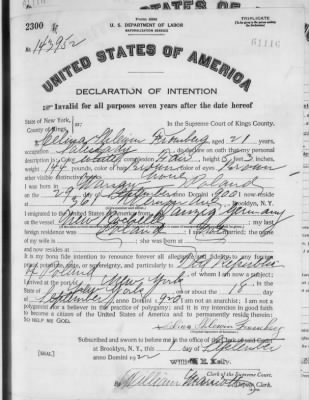 Form 2202
TRIPLICATE
U. S. DEPARTMENT OF LABOR
NATURALIZATION SERVICE
2300
No 143952
61116
UNITED STATES OF AMERICA
DECLARATION OF INTENTION
Invalid for all purposes seven years after the date hereof
State of New York,
County of Kings, ss: In the Supreme Court of Kings County.
I, aged 21 years,
occupation, do declare on oath that my personal
description is: Color white, complexion Fair, height 5 feet 3 inches,
weight 144 pounds, color of hair Brown, color of eyes Brown
other visible distinctive marks
I was born in Poland
on the 29 day of September, anno Domini 1900; I now reside
at 361, Brooklyn, N. Y.
I emigrated to the United States of America from Danzig Germany
on the vessel; my last
foreign residence was Poland; I am married; the name
of my wife is; she was born at
and now resides at
It is my bona fide intention to renounce forever all allegiance and fidelity to any foreign
prince, potentate, state, or sovereignty, and particularly to The Republic
of Poland, of whom I am now a subject; I
arrived at the port of New York, in the
State of New York, on or about the 18 day
of September, anno Domini 1920; I am not an anarchist; I am not a
polygamist nor a believer in the practice of polygamy; and it is my intention in good faith
to become a citizen of the United States of America and to permanently reside therein:
SO HELP ME GOD.
Subscribed and sworn to before me in the office of the Clerk of said Court
at Brooklyn, N. Y., this 1 day of September
anno Domini 1922
[SEAL]
William E. Kelly.
Clerk of the Supreme Court.
By William, Deputy Clerk.